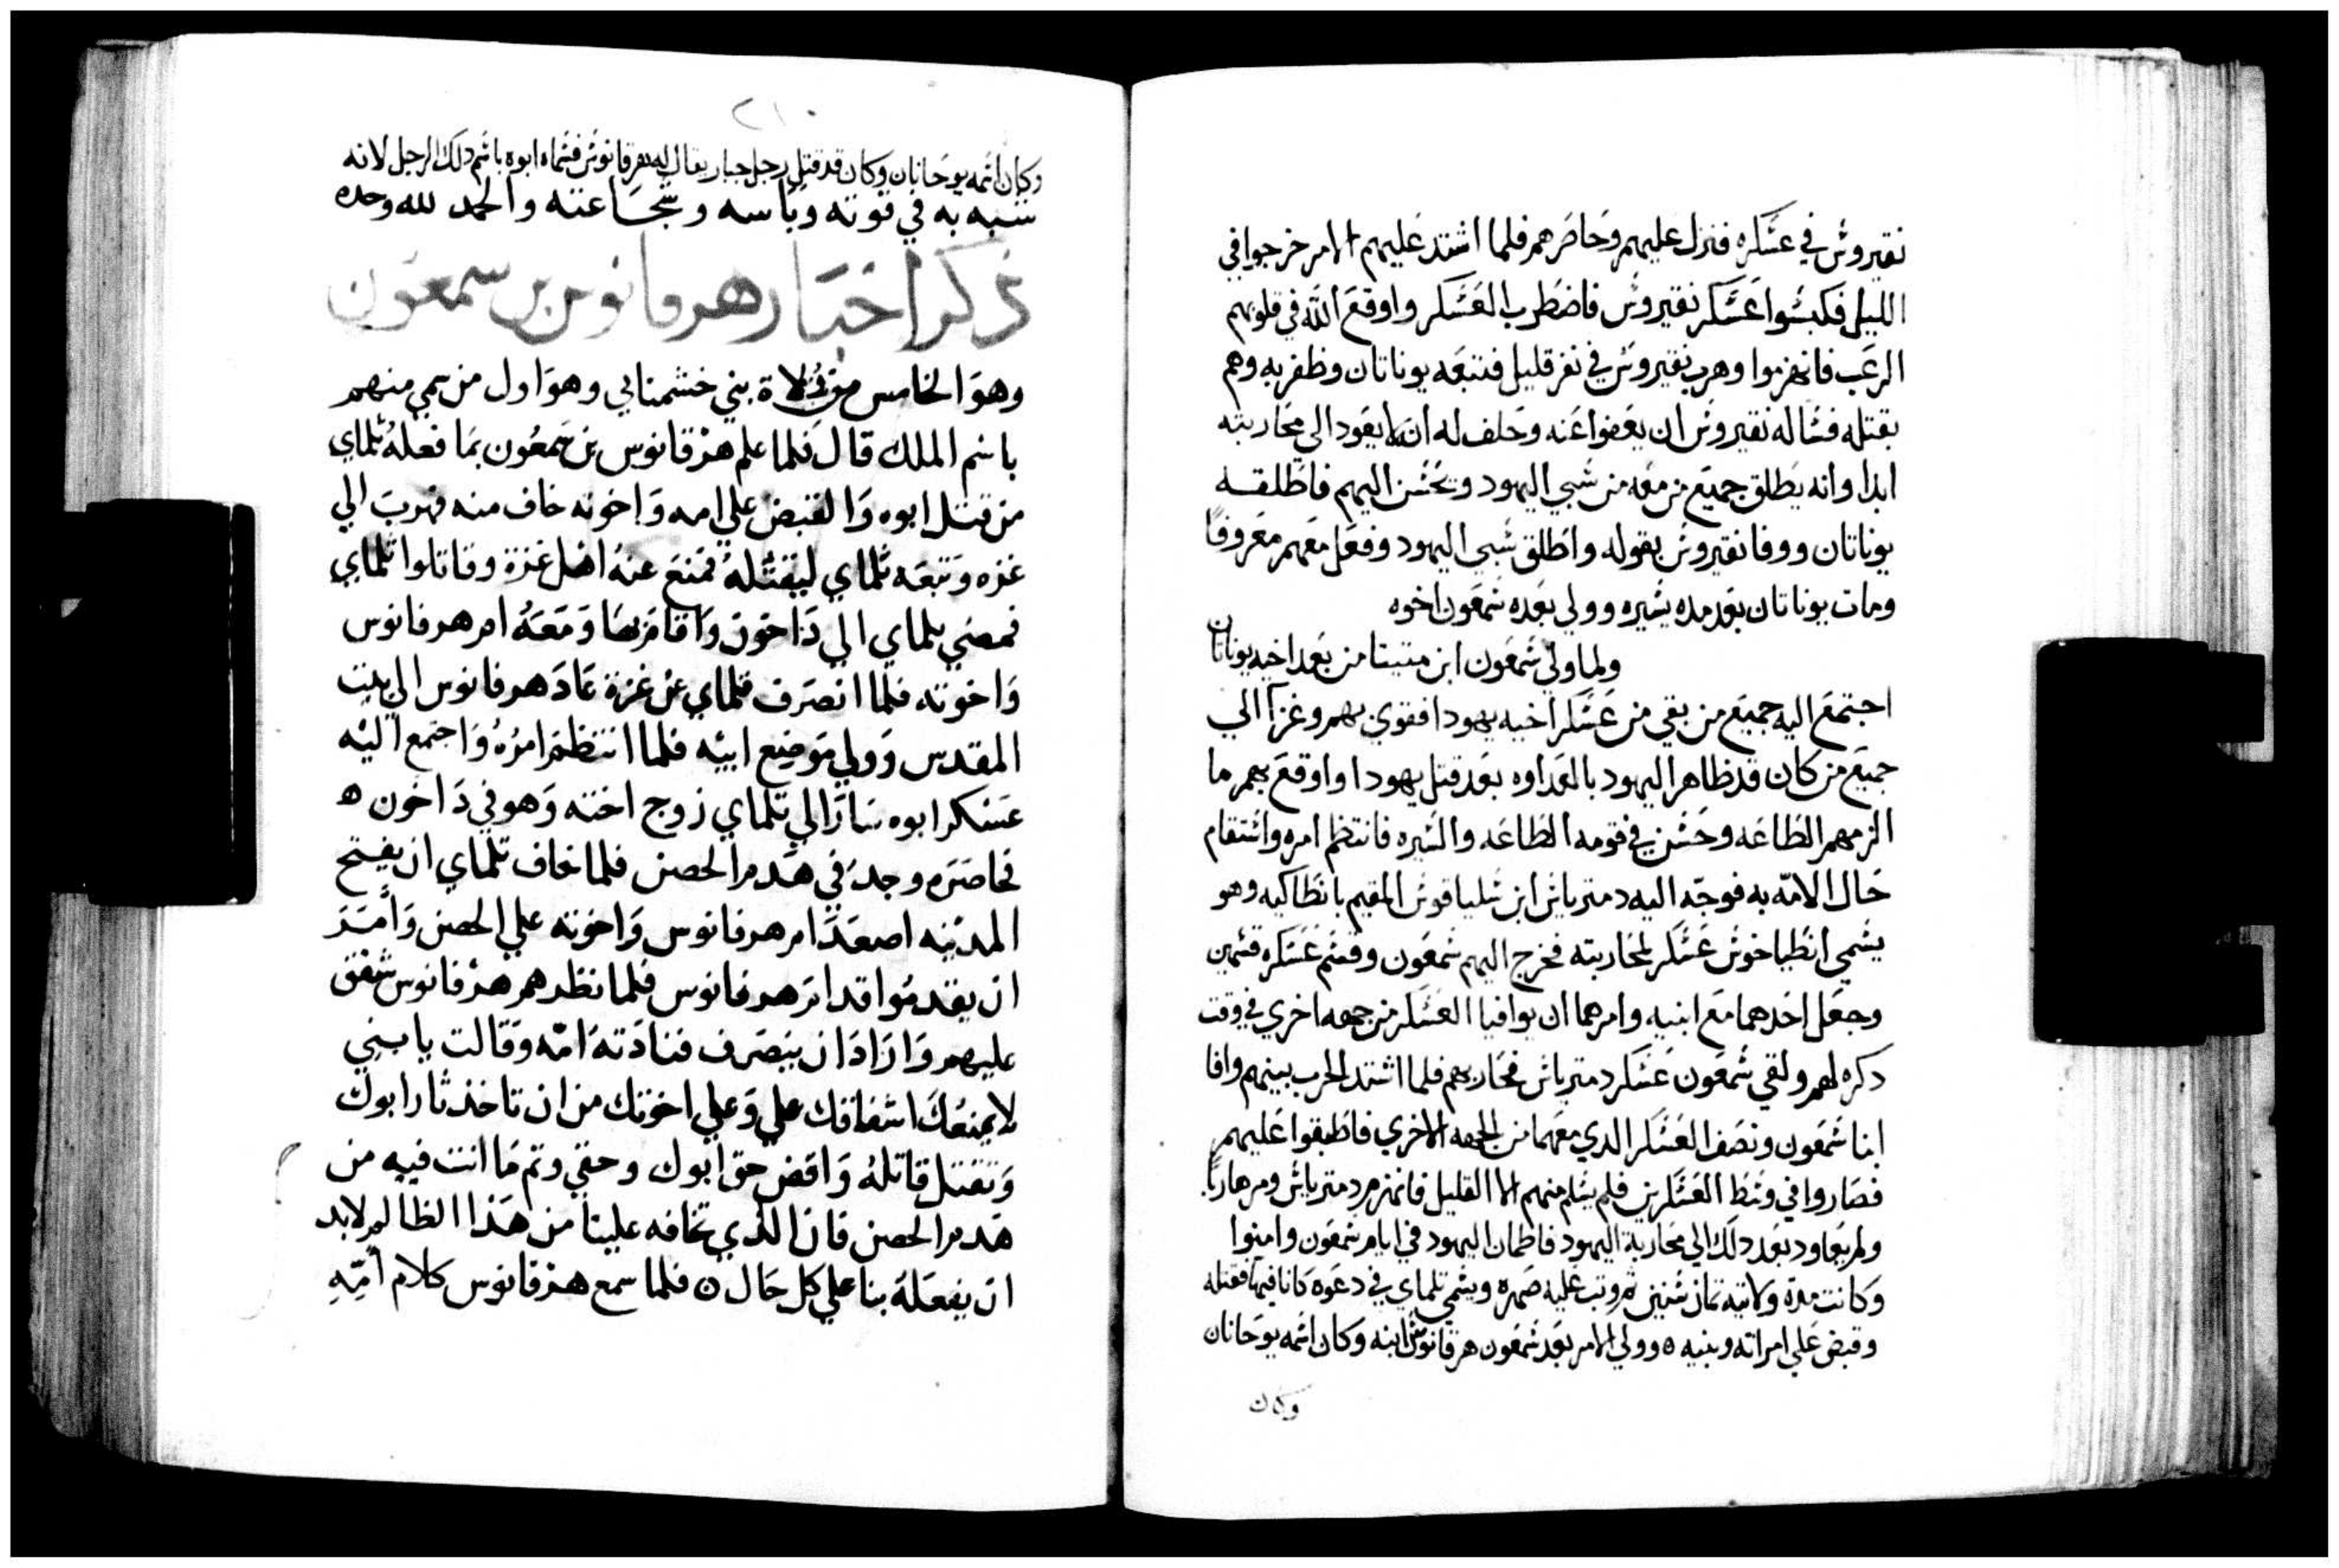 نقيروش في عسكره فنزل عليهم وحاصرهم فلما اشتد عليهم الامر خرجوا في
الليل فكبسوا عسكر نقيروش فاضطرب العسكر واوقع الله في قلوبهم
الرعب فانهزموا وهرب نقيروش في نفر قليل فتبعه يوناتان وظفر به وهم
بقتله فساله نقيروش ان يعفوا عنه وحلف له انه لا يعود الى محاربته
ابدا وانه يطلق جميع من معه من سبي اليهود ويحسن اليهم فاطلقه
يوناتان ووفا نقيروش بقوله واطلق سبي اليهود وفعل معهم معروفا
ومات يوناتان بعد مده يسيره وولي بعده شمعون اخوه
ولما ولي شمعون ابن متيتا من بعد اخيه يوناتان
اجتمع اليه جميع من بقي من عسكر اخيه يهودا فقوي بهم وغزا الي
جميع من كان قد ظاهر اليهود بالعداوه بعد قتل يهودا واوقع بهم ما
الزمهم الطاعه وحسن في قومه الطاعه والسيره فانتظم امره واستقام
حال الامه به فوجه اليه دمترياش ابن سلياقوش المقيم بانطاكيه وهو
يسمي انطياخوش عسكر لمحاربته فخرج اليهم شمعون وقسم عسكره قسمين
وجعل احدهما مع ابنيه وامرهما ان يوافيا العسكر من جهه اخري في وقت
ذكره لهم ولقي شمعون عسكر دمترياش فحاربهم فلما اشتد الحرب بينهم وافا
ابنا شمعون ونصف العسكر الدي معهما من الجهه الاخري فاطبقوا عليهم
فصاروا في وسط العسكرين فلم يسلم منهم الا القليل فانهزم دمترياش ومر هاربا
ولم يعاود بعد دلك الي محاربة اليهود فاطمان اليهود في ايام شمعون وامنوا
وكانت مدة ولايته ثمان سنين ثم وثب عليه صهره ويسمي تلماي في دعوه كانا فيها فقتله
وقبض علي امراته وبنيه ه وولي الامر بعد شمعون هرقانوش ابنه وكان اسمه يوحانان
وكان
٢١٠
وكان اسمه يوحانان وكان قد قتل رجل جبار يقال له هرقانوش فسماه ابوه باسم دلك الرجل لانه
شبه به في قوته وباسه وشجاعته والحمد لله وحده
ذكر اخبار هرقانوس بن سمعون
وهو الخامس من ولاة بني خشمناي وهو اول من سمي منهم
باسم الملك قال فلما علم هرقانوس بن سمعون بما فعله تلماي
من قتل ابوه والقبض علي امه واخوته خاف منه فهرب الي
غزه وتبعه تلماي ليقتله فمنع عنه اهل غزة وقاتلوا تلماي
فمضي تلماي الي داخون واقام بها ومعه ام هرقانوس
واخوته فلما انصرف تلماي عن غزة عاد هرقانوس الي بيت
المقدس وولي موضع ابيه فلما انتظم امره واجتمع اليه
عسكر ابوه سار الي تلماي زوج اخته وهو في داخون ه
فحاصره وجد في هدم الحصن فلما خاف تلماي ان يفتح
المدينه اصعد ام هرقانوس واخوته علي الحصن وامر
ان يقدموا قدام هرقانوس فلما نظرهم هرقانوس شفق
عليهم واراد ان ينصرف فنادته امه وقالت يا بني
لا يمنعك اشفاقك علي وعلي اخوتك من ان تاخذ ثار ابوك
وتقتل قاتله واقض حق ابوك وحقي وتم ما انت فيه من
هدم الحصن فان الذي تخافه علينا من هذا الظالم لابد
ان يفعله بنا علي كل حال ه فلما سمع هرقانوس كلام امه